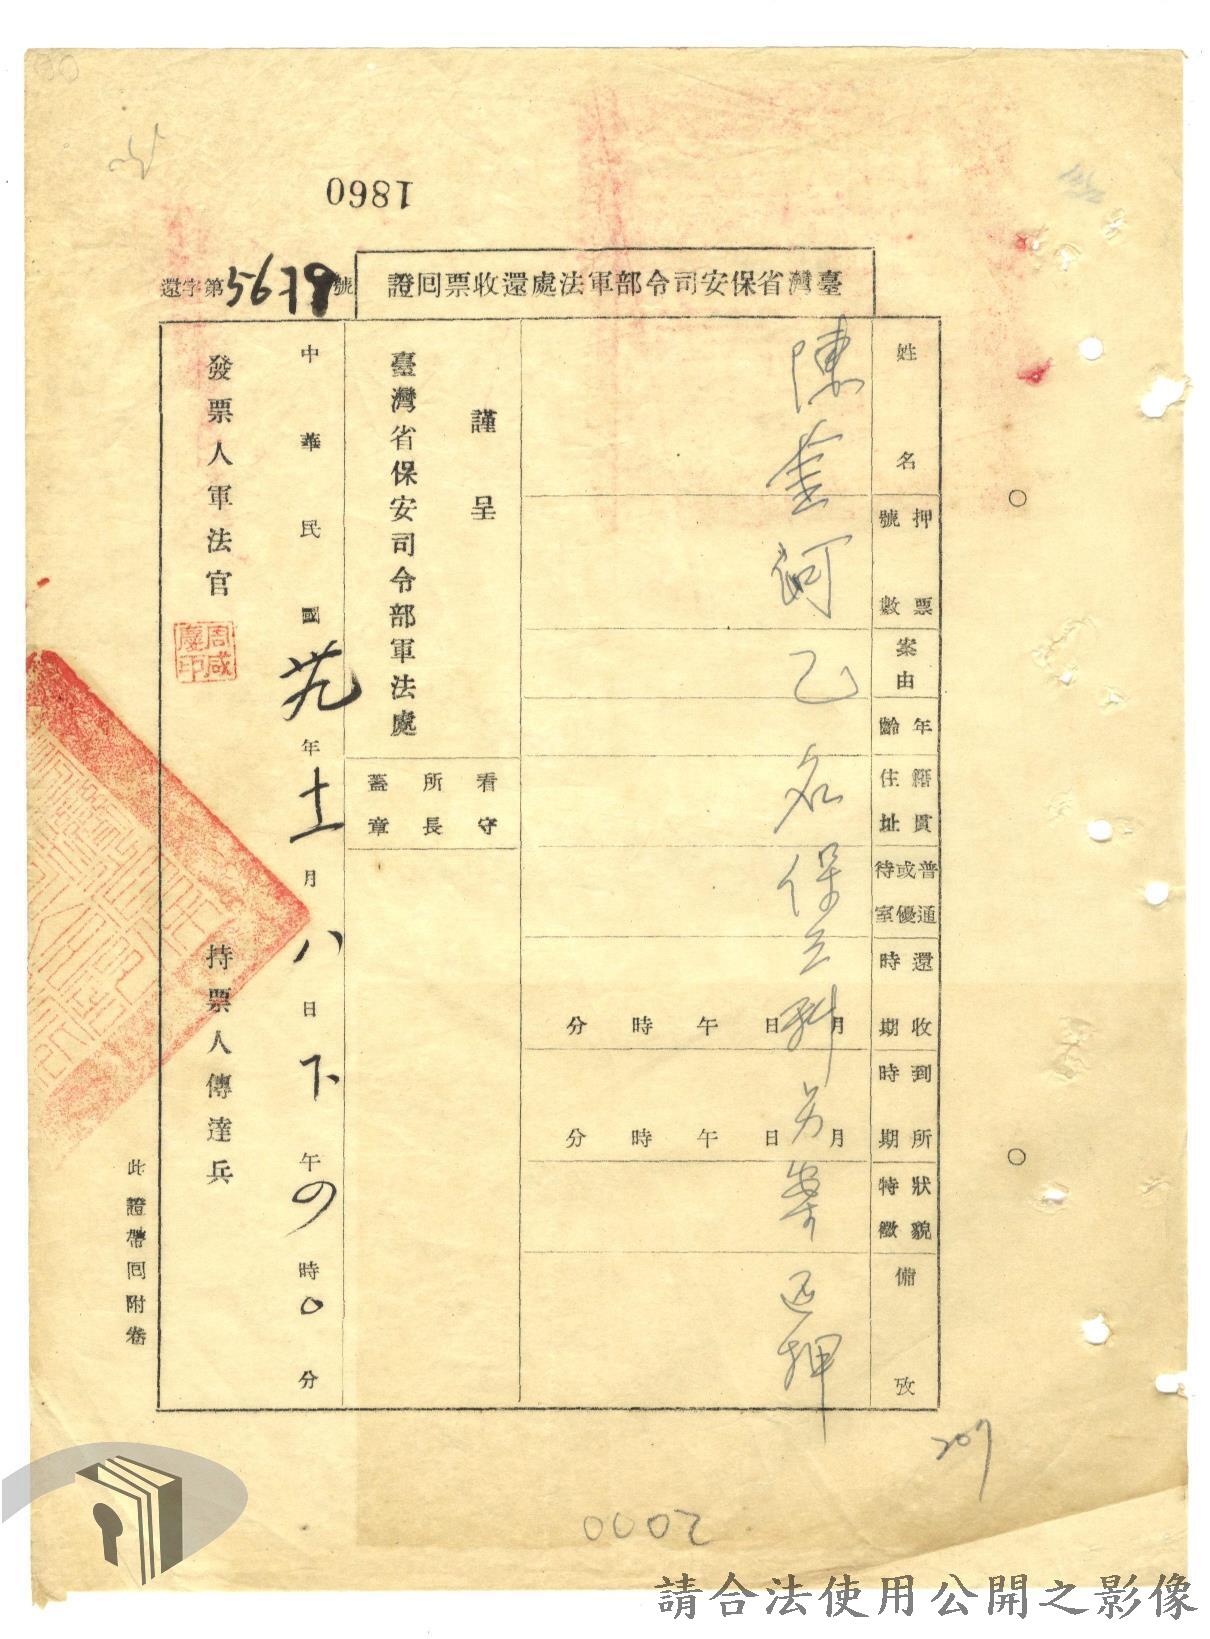 1860
臺灣省保安司令部軍法處還收票回證
還字第5679號
姓名
押票號數
案由
年齡
籍貫住址
普通或優待室
還收時期
到所時期
狀貌特徵
備攷
陳金河乙名保立科另案還押
月日午時分
月日午時分
謹呈
臺灣省保安司令部軍法處
看守所長蓋章
中華民國卅九年十一月八日下午四時0分
發票人軍法官
持票人傳達兵
此證帶回附卷
207
0002
請合法使用公開之影像